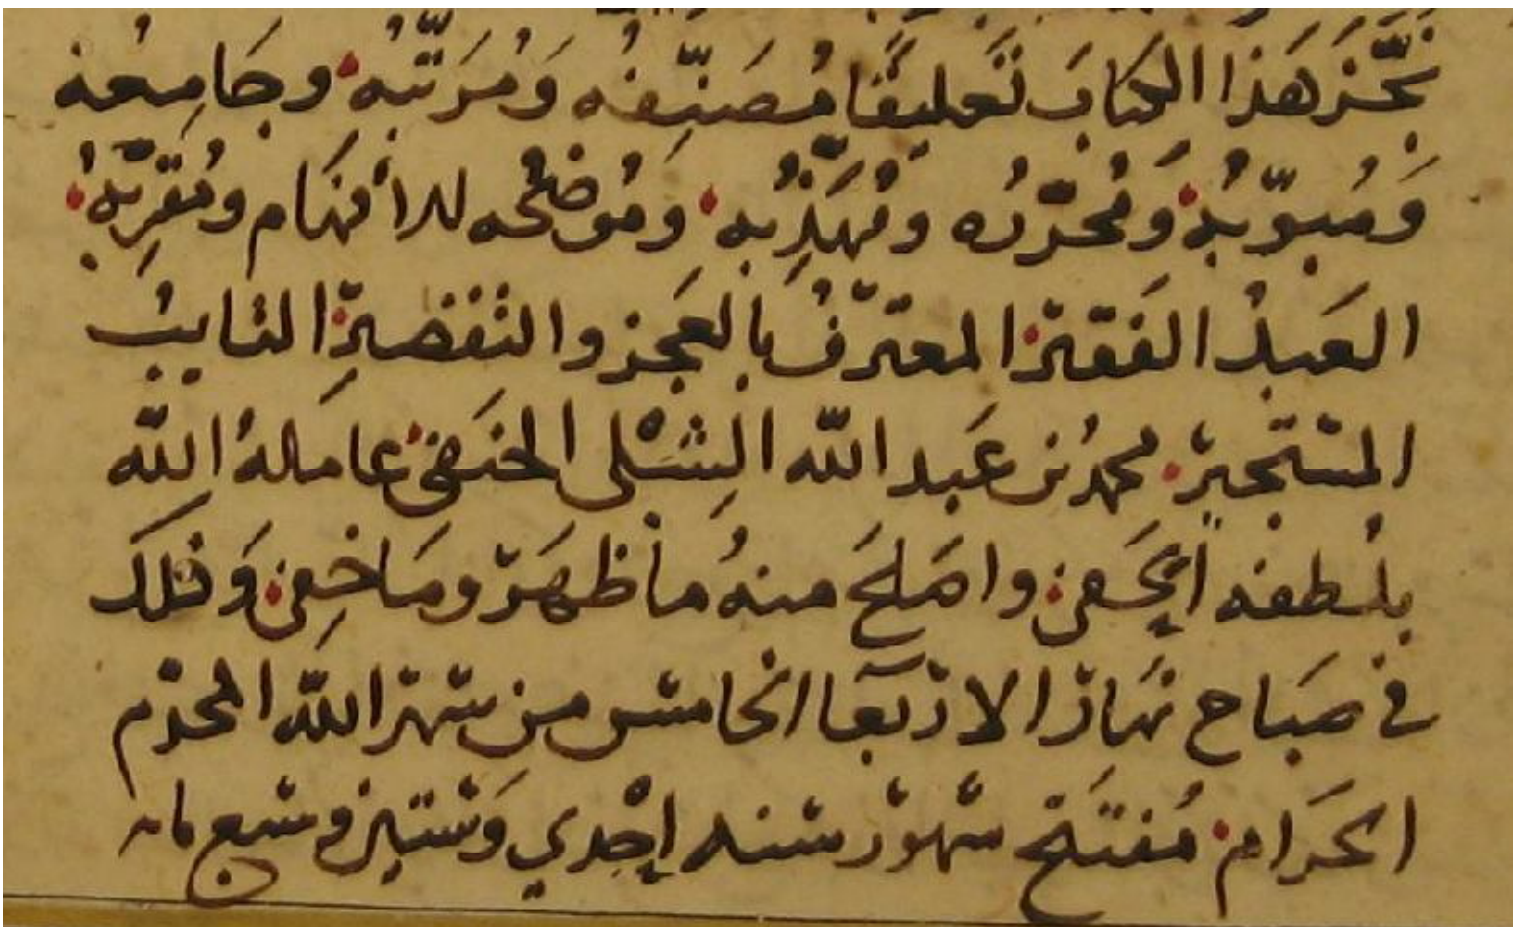 نَجَّزَ هَذَا الكِتابَ تَعليقًا مُصَنِّفُه وَمُرَتِّبُه وجَامِعُه
وَمُبَوِّبُه وَمُحَرِّرُه ومُهَذِّبُه ومُوَضِّحُه للأفهَام ومُقرِّبُهُ
العَبدُ الفَقير المعترفُ بالعَجز والتقصير التايبُ
المستجير محمدُ بن عَبد الله الشِبْلى الحَنَفى عامَلهُ الله
بلُطفه الخَفى واصَلحَ منهُ ما ظهَر ومَا خفِى وَذلكَ
فى صَباح نهَار الاربَعَا الخامس من شهر الله المحرّم
الحَرام مُفتَتح شهور سنه إحْدي وَستين وسبع مايه